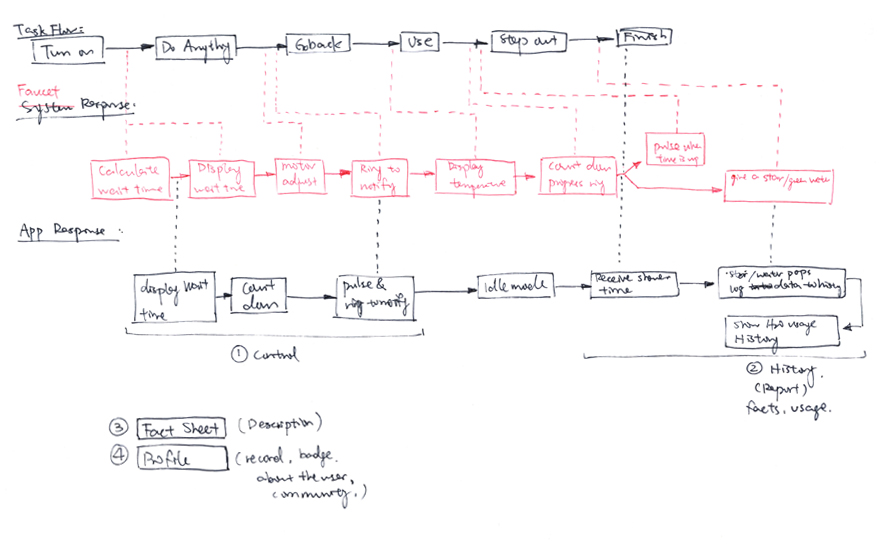 Task Flow:
Turn on
Do Anything
Goback
Use
Step out
Finish
Faucet
System Response:
Calculate
wait time
Display
wait time
motor
adjust
Ring to
notify
Display
Count down
progress ring
pulse when
time is up
give a star/
App Response:
display wait
time
Count
down
pulse &
ring to notify
Idle mode
Receive shower
time
star/water pops
log data
Show H2O usage
History
① Control
② History.
(Report)
facts, usage.
③ Fact Sheet (Description)
④ Profile (record, badge.
about the user,
community.)